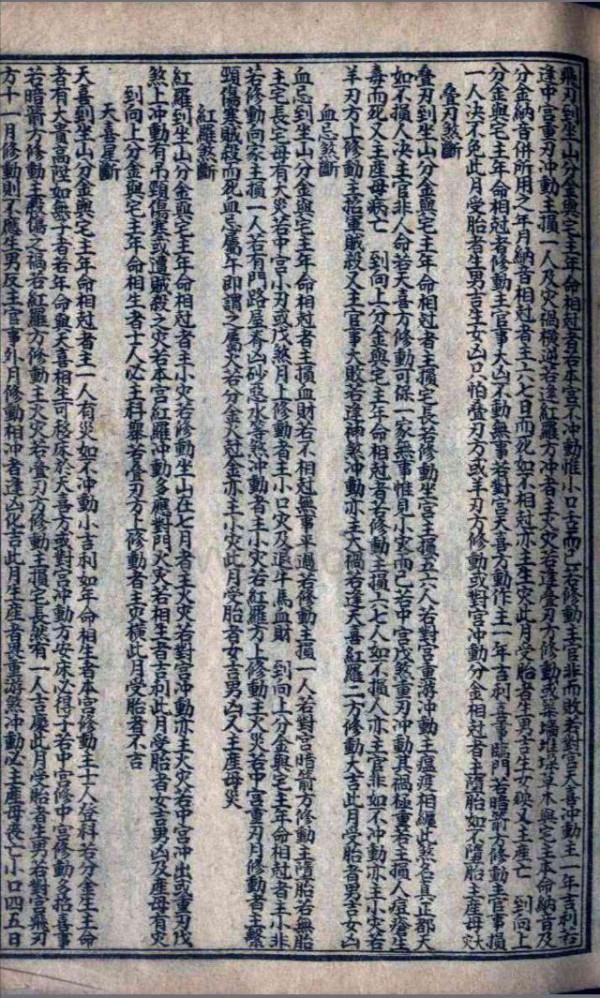 飛刃到坐山分金與宅主年命相尅者若本宮不沖動惟小口舌而已若修動主官非而敗若對宮天喜沖動主一年吉利若
逢中宮重刃沖動主損一人及灾禍橫逆若逢紅羅方沖者主火灾若逢叠刃方修動或築墻堆垜草木與宅主本命納音及
分金納音併所用之年月納音相尅者主六七日而死如不相尅亦主生灾此月受胎者生男吉生女殃又主產亡 到向上
分金與宅主年命相尅者修動主官事大凶不動無事若對宮天喜方動作主一年吉利喜事臨門若暗箭方修動主官事損
一人决不免此月受胎者生男吉生女凶只怕叠刃方或羊刃方修動或對宮沖動分金相尅者主墮胎如不墮胎主產母大灾
叠刃煞斷
叠刃到坐山分金與宅主年命相尅者主損宅長若修動坐宮主損五六人若對宮重游沖動主瘟疫相纏此煞名真正都天
如不損人决主官非人命若天喜方修動可保一家無事惟見小灾而已若中宮戊煞重刃沖動其禍極重若主損人痘瘡生
毒而死又主產母病亡 到向上分金與宅主年命相尅者若修動主損六七人如不損人亦主官非如不沖動亦主小灾若
羊刃方上修動主招軍賊殺又主官事大敗若逢神煞沖動亦主大禍若逢天喜紅羅二方修動大吉此月受胎者男吉女凶
血忌煞斷
血忌到坐山分金與宅主年命相尅者主損血財若不相尅無事平過若修動主損一人若對宮暗箭方修動主墮胎若無胎
主宅長宅母有大灾若中宮小刃或戊煞月上修動者主小口灾及退牛馬血財 到向上分金與宅主年命相尅者主小非
若修動向家主損一人若有門路屋脊凶砂惡水等煞沖動者主小灾若紅羅方上修動主火灾若中宮重刃月修動者主繫
頸傷寒賊殺而死血忌屬午即謂之屬火若分金入尅金亦主小灾此月受胎者女吉男凶又主產母灾
紅羅煞斷
紅羅到坐山分金與宅主年命相尅者主小灾若修動坐山在七月者主火灾若對宮沖動亦主火灾若中宮沖出或重刃戊
煞上沖動有弔頸傷寒或遭賊殺之灾若本宮紅羅沖動多應對門火灾若相生者吉利此月受胎者女吉男凶及產母有灾
到向上分金與宅主年命相生者士人必主科舉若叠刃方上修動者主灾橫此月受胎者不吉
天喜星斷
天喜到坐山分金與宅主年命相尅者主一人有災如不沖動小吉利如年命相生者本宮修動主士人登科若分金生主命
者有大貴高陞如無子者若年命與天喜相生可移床於天喜方或對宮沖動方安床必得子若中宮修中宮修動多招喜事
若暗箭方修動主殺傷之禍若紅羅方修動主火灾若叠刃方修動主損宅長然有一人吉慶此月受胎者生男若對宮飛刃
方十一月修動則不應生男反主官事外月修動相沖者逢凶化吉此月生產者畏重游煞沖動必主產母喪亡小口四五日